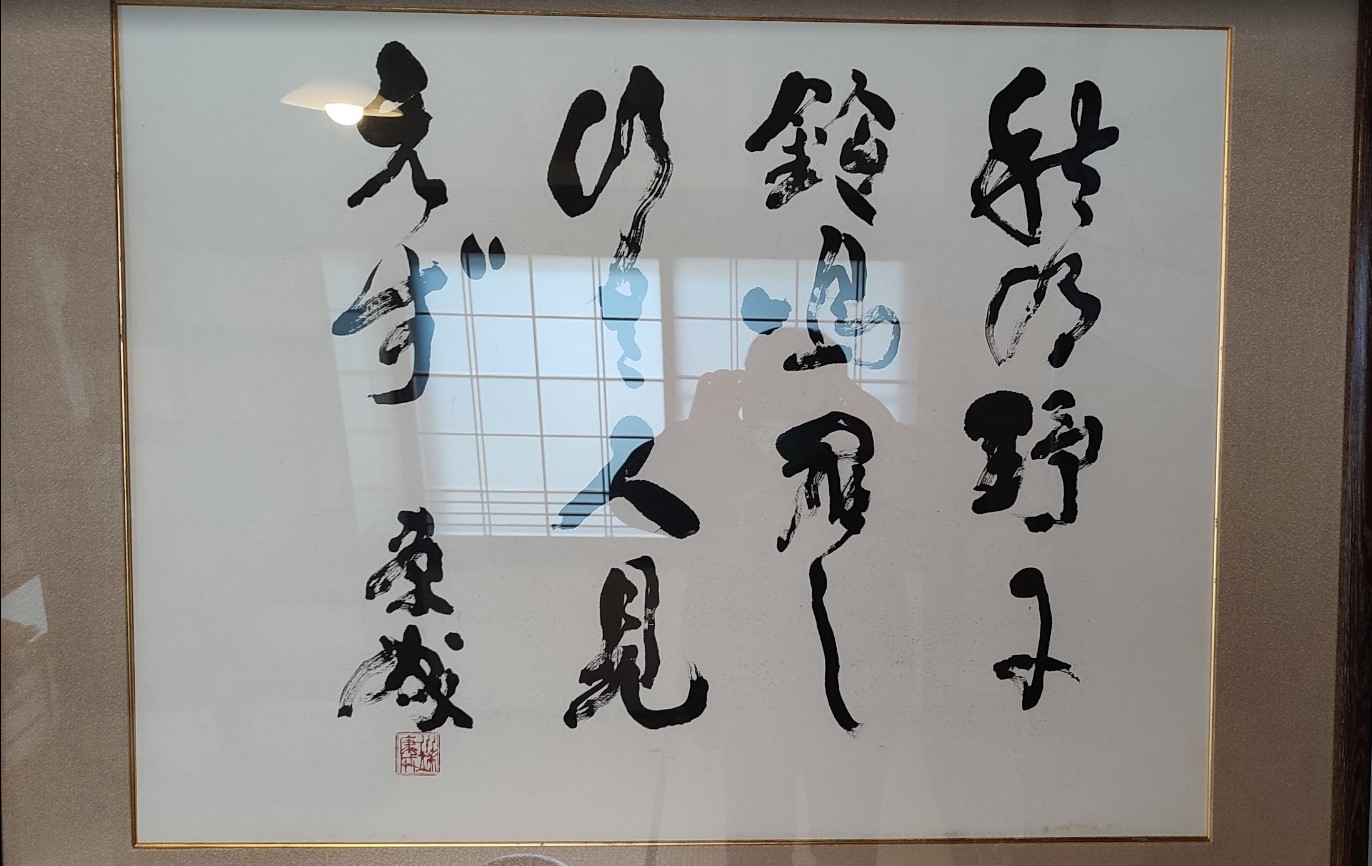 秋の野に
鈴鳴らし
ゆく人見
えず
康成